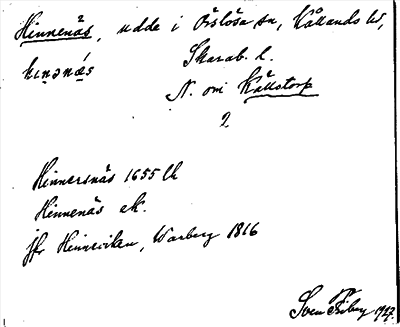 Hinnenäs, udde i Örslösa sn, Kållands hd,
hɩnənä́s Skarab. l.
N. om Källstorp
2.
Hinnersnäs 1655 lk
Hinnenäs ek.
jfr Hinneviken, Warberg 1816
Sven Friberg 1927.